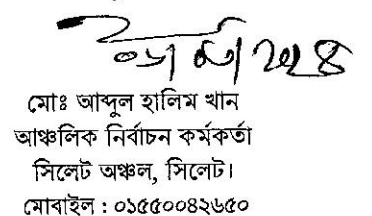 মোঃ আব্দুল হালিম খান
আঞ্চলিক নির্বাচন কর্মকর্তা
সিলেট অঞ্চল, সিলেট।
মোবাইল : ০১৫৫০০৪২৬৫০